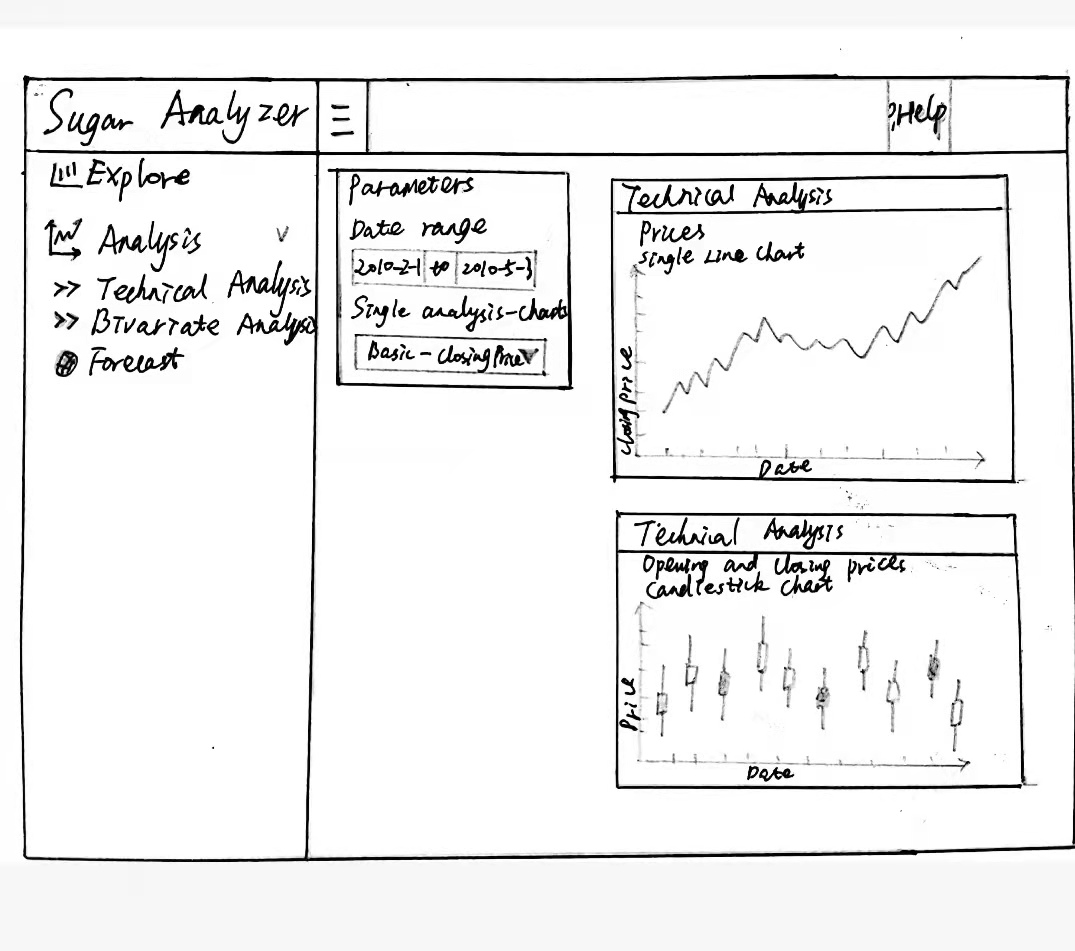 Sugar Analyzer
?Help
Explore
Analysis
>> Technical Analysis
>> Bivariate Analysis
Forecast
Parameters
Date range
2010-2-1 to 2010-5-3
Single analysis-charts
Basic - closing Price
Technical Analysis
Prices
Single Line Chart
Closing Price
Date
Technical Analysis
Opening and Closing prices
Candlestick Chart
Price
Date